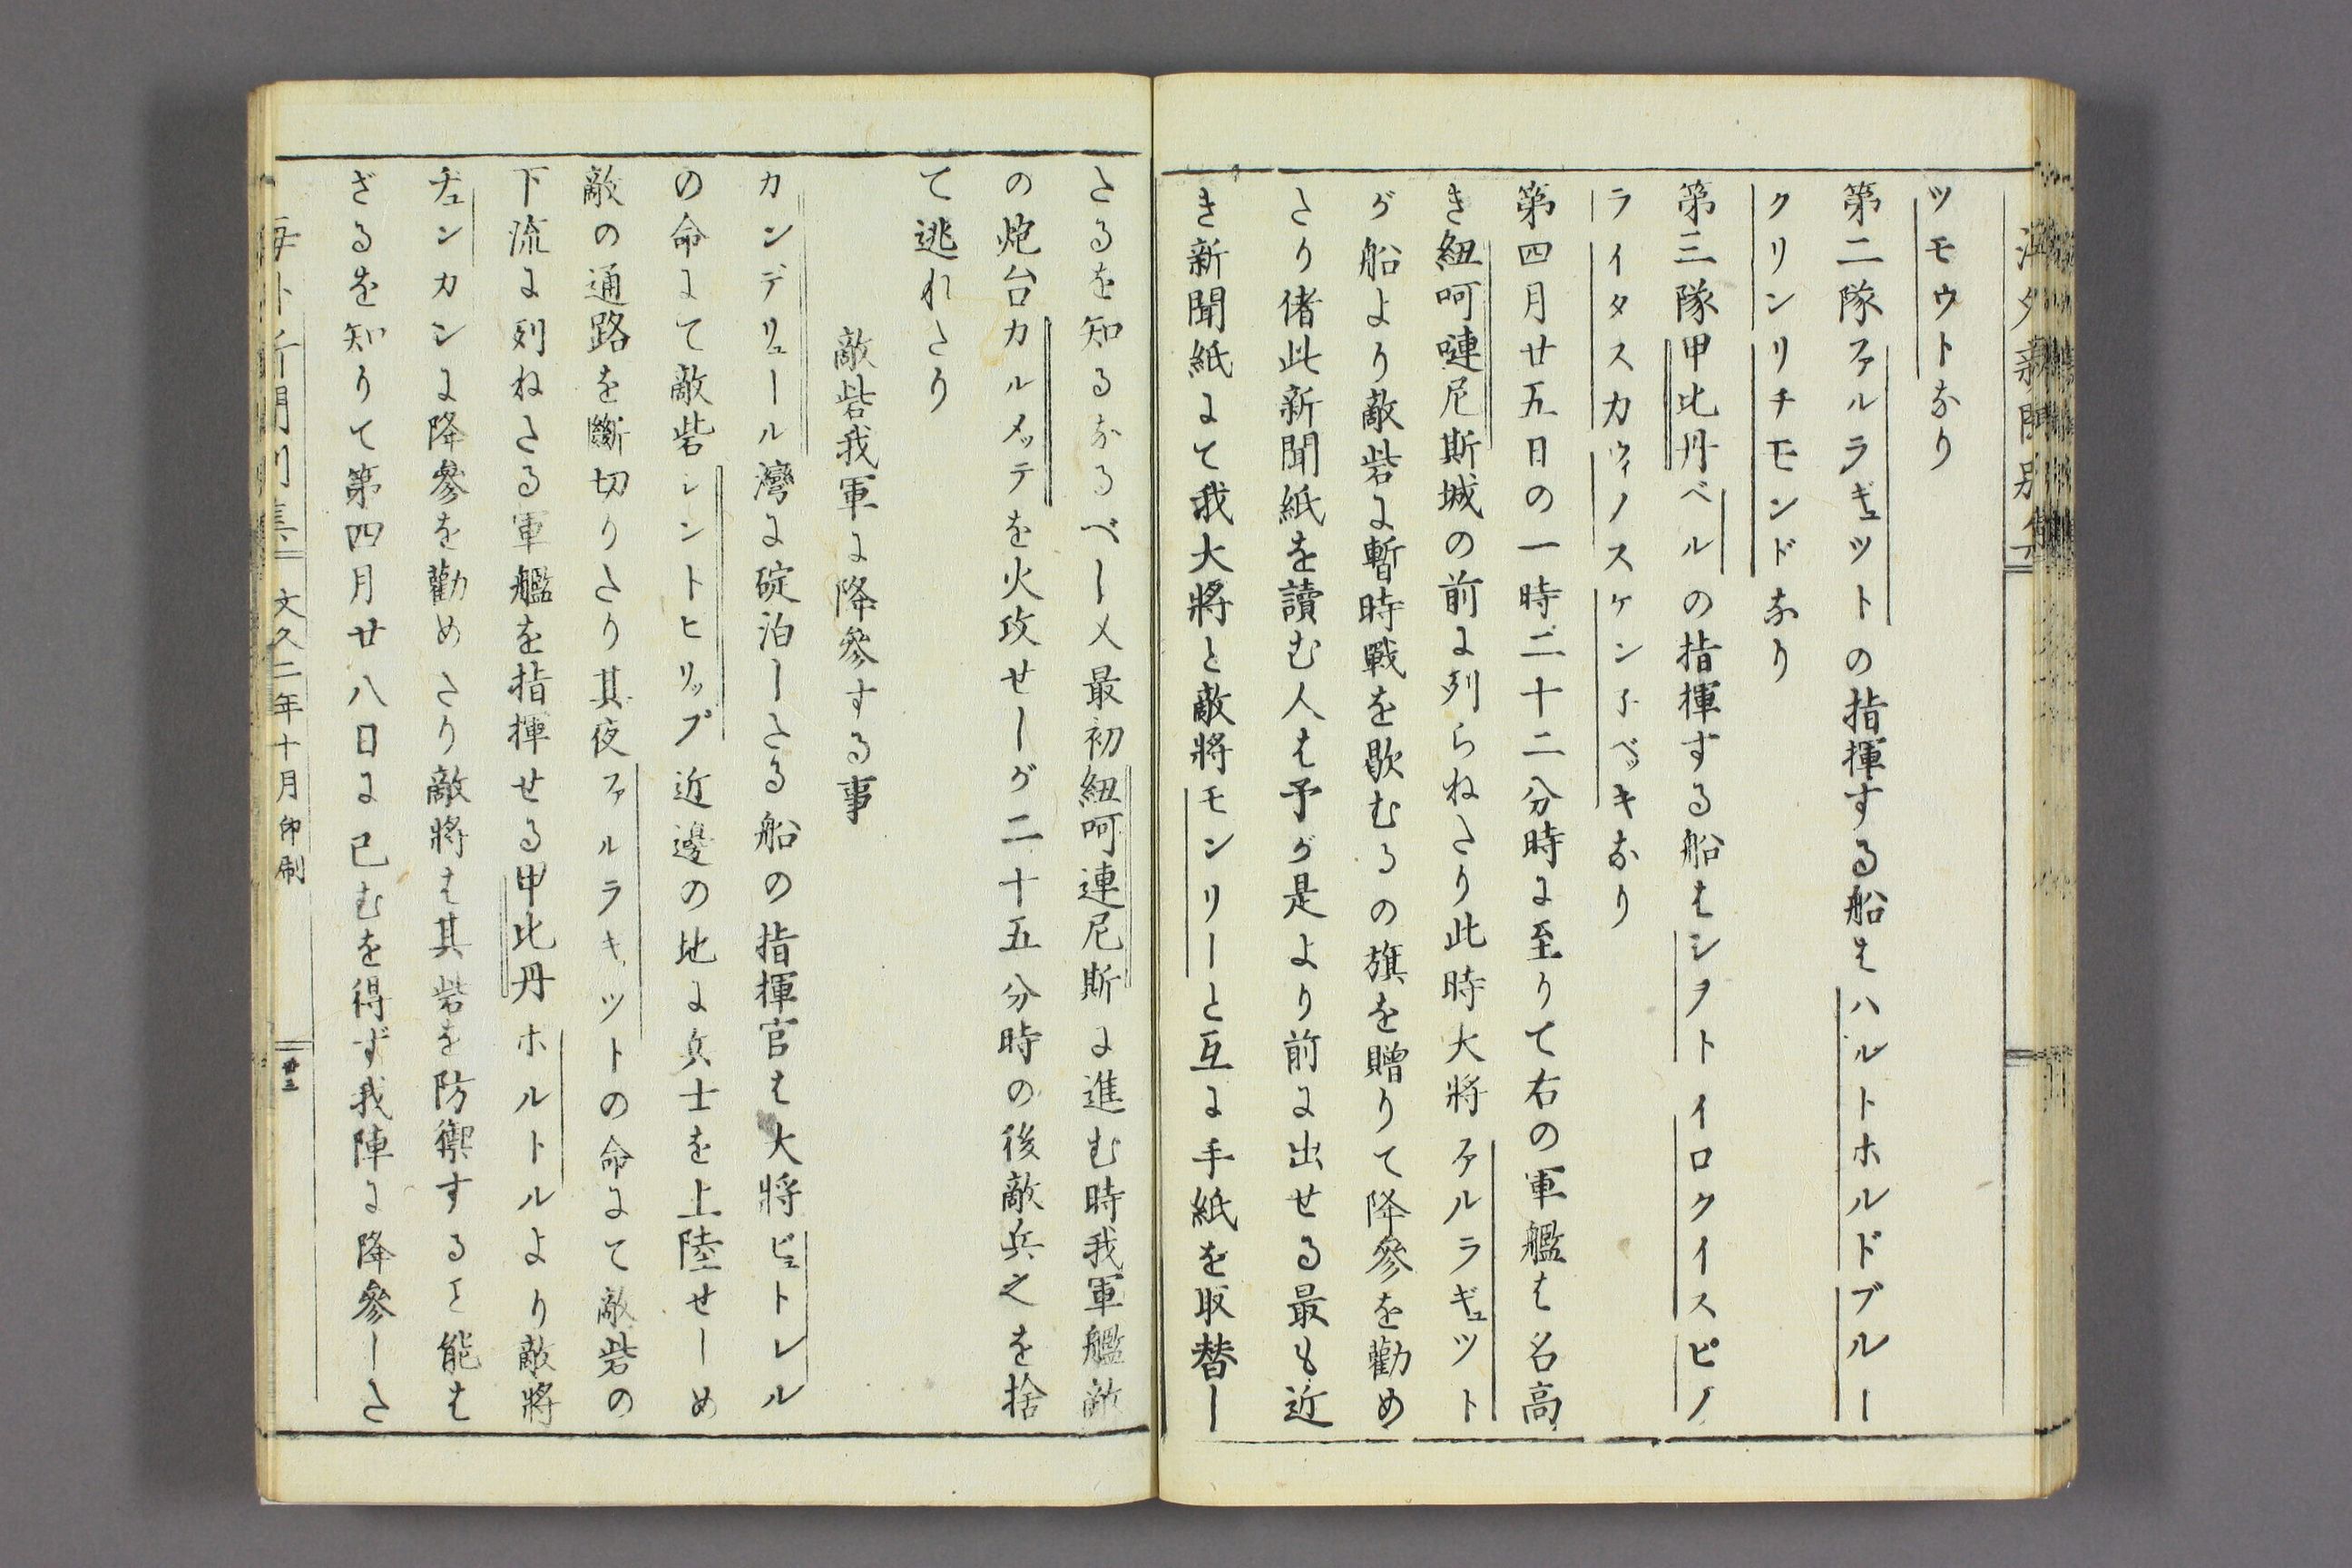 ツモウトなり
第二隊ファルラギュットの指揮する船はハルトホルドブルー
クリンリチモンドなり
第三隊甲比丹ベルの指揮する船はシヲトイロクイスピノ
ライタスカウィノスケン子ベッキなり
第四月廿五日の一時二十二分時に至りて右の軍艦は名高
き紐呵嗹尼斯城の前に列らねたり此時大将ファルラギュット
が船より敵砦に暫時戰を歇むるの旗を贈りて降參を勸め
たり偖此新聞紙を讀む人は予が是より前に出せる最も近
き新聞紙にて我大將と敵將モンリーと互に手紙を取替し
たるを知るなるべし㐅最初紐呵連尼斯に進む時我軍艦敵
の炮台カルメッテを火攻せしが二十五分時の後敵兵之を捨
て逃れたり
敵砦我軍に降參する事
カンデリュール灣に碇泊したる船の指揮官は大將ビュトレル
の命にて敵砦シントヒリップ近邊の地に兵士を上陸せしめ
敵の通路を斷切りたり其夜ファルラキッツトの命にて敵砦の
下流に列ねたる軍艦を指揮せる甲比丹ホルトルより敵將
ヂュンカンに降參を勸めたり敵將は其砦を防禦すること能は
ざるを知りて第四月廿八日に已むを得ず我陣に降參した
文久二年十月印刷
廿三